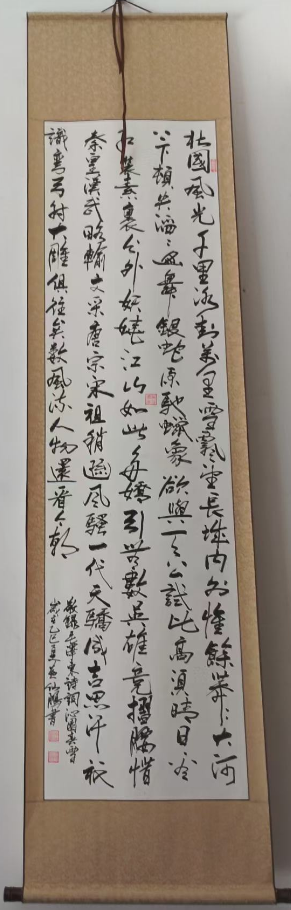 北國風光千里冰封萬里雪飄望長城内外惟餘莽々大河
上下頓失滔々山舞銀蛇原馳蠟象欲與天公試比高須晴日看
紅裝素裹分外妖嬈江山如此多嬌引無數英雄競摺腰惜
秦皇漢武略輸文采唐宗宋祖稍遜風騷一代天驕成吉思汗祇
識彎弓射大雕俱往矣數風流人物還看今朝
錄毛澤東詩詞沁園春雪
歲在乙巳書